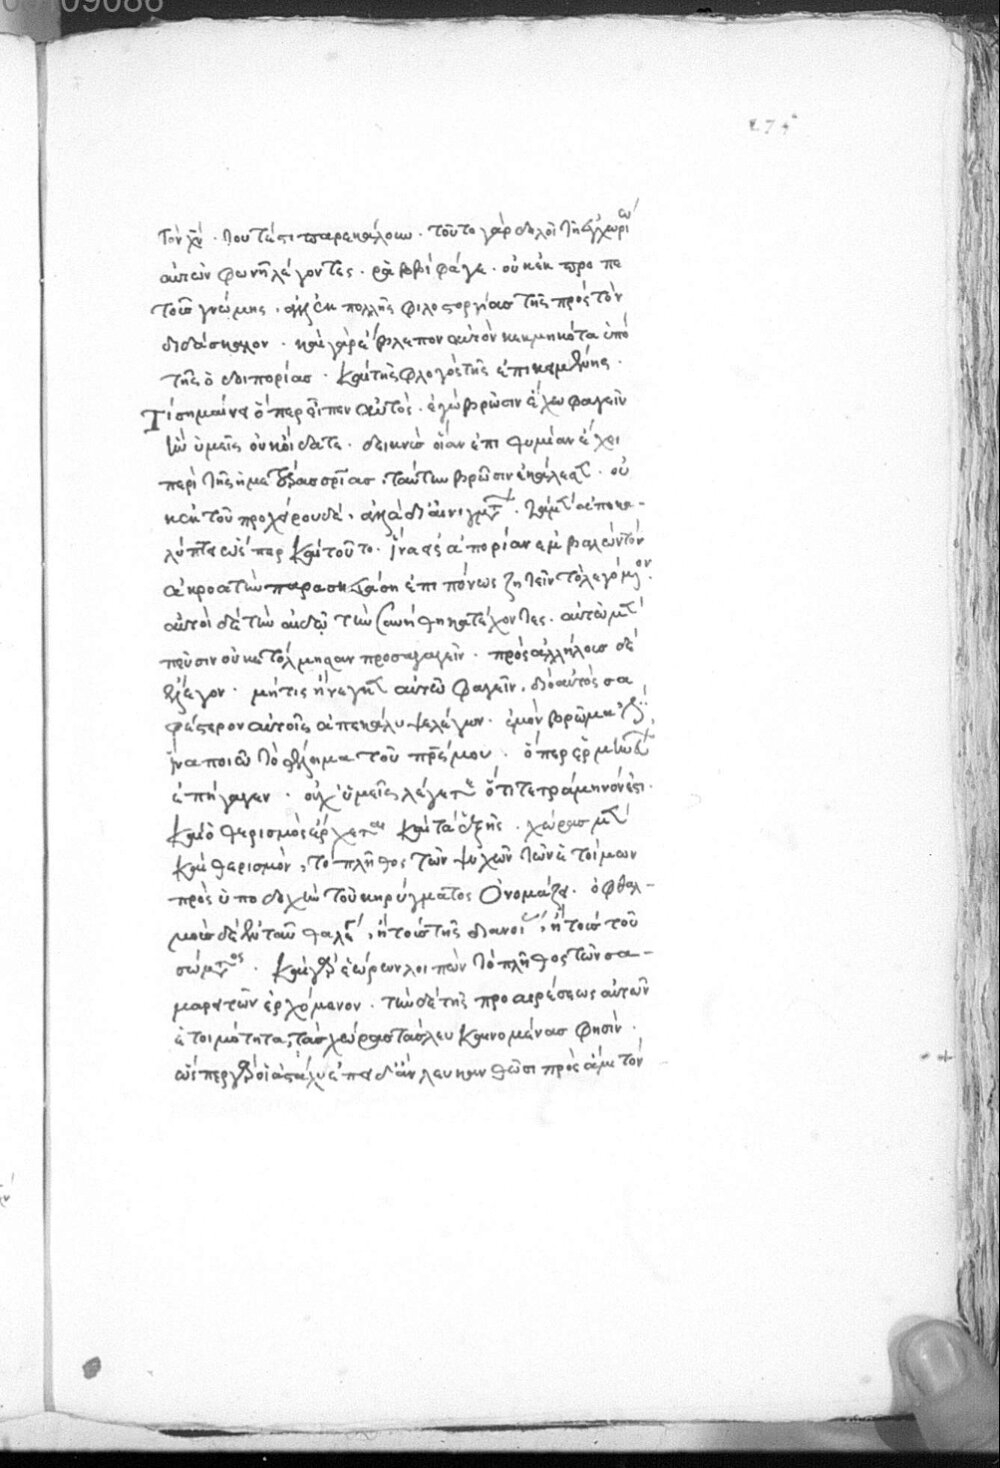 τὸν χν· τουτέστι παρεκάλουν. τοῦτο γὰρ δηλοῖ τῇ ἐγχωρίω
αὐτῶν φωνῇ λέγοντες. ραββὶ φάγε. οὐκ ἐκ προπε
τοῦς γνώμης, ἀλλ' ἐκ πολλῆς φιλοστοργίας τῆς πρὸς τὸν
διδάσκαλον. καὶ γὰρ ἔβλεπον αὐτὸν κεκμηκότα ὑπὸ
τῆς ὁδοιπορίας. καὶ τῆς φλογὸς τῆς ἐπικειμένης.
Τί σημαίνει ὅπερ εἶπεν αὐτός. ἐγὼ βρῶσιν ἔχω φαγεῖν
ἣν ὑμεῖς οὐκ οἴδατε. δεικνὺς οἵαν ἐπιθυμίαν ἔχει
περὶ τῆς ἡμετέρας σρίας. ταύτην βρῶσιν ἐκάλεσε. οὐ
κ ἐκ τοῦ προχείρου δὲ, ἀλλὰ δι' αἰνιγμάτων. ἀποκα-
λύπτει ὥσπερ καὶ τοῦτο. ἵνα εἰς ἀπορίαν ἐμβαλὼν τὸν
ἀκροατὴν παρασκευάση ἐπιπόνως ζητεῖν τὸ λεγόμενον.
αὐτοὶ δὲ τὴν αἰδῶ τὴν συνήθη κατέχοντες. αὐτῶ μὲν
πεῦσιν οὐκ ἐτόλμησαν προσαγαγεῖν. πρὸς ἀλλήλους δὲ
ἔλεγον. μή τις ἤνεγκεν αὐτῶ φαγεῖν. διὸ αὐτὸς σα
φέστερον αὐτοῖς ἀπεκάλυψε λέγων. ἐμὸν βρῶμά ἐστιν
ἵνα ποιῶ τὸ θέλημα τοῦ πρς μου. ὅπερ ἑρμηνεύων
ἐπήγαγεν. οὐχ' ὑμεῖς λέγετε ὅτι τετράμηνόν ἐστι.
καὶ ὁ θερισμὸς ἔρχεται καὶ τὰ ἑξῆς. χώρας μὲν
καὶ θερισμὸν, τὸ πλῆθος τῶν ψυχῶν τῶν ἑτοίμων
πρὸς ὑποδοχὴν τοῦ κηρύγματος ὀνομάζει. ὀφθαλ-
μοὺς δὲ ἐνταῦθα λέγει, ἢ τοὺς τῆς διανοίας, ἢ τοὺς τοῦ
σώματος. καὶ γὰρ ἑώρων λοιπὸν τὸ πλῆθος τῶν σα-
μαρειτῶν ἐρχόμενον. τὴν δὲ τῆς προαιρέσεως αὐτῶν
ἑτοιμότητα, τὰς χώρας τὰς λευκαινομένας φησίν.
ὥσπερ γὰρ οἱ ἀστάχυες ἐπειδὰν λευκανθῶσι πρὸς ἄμητον